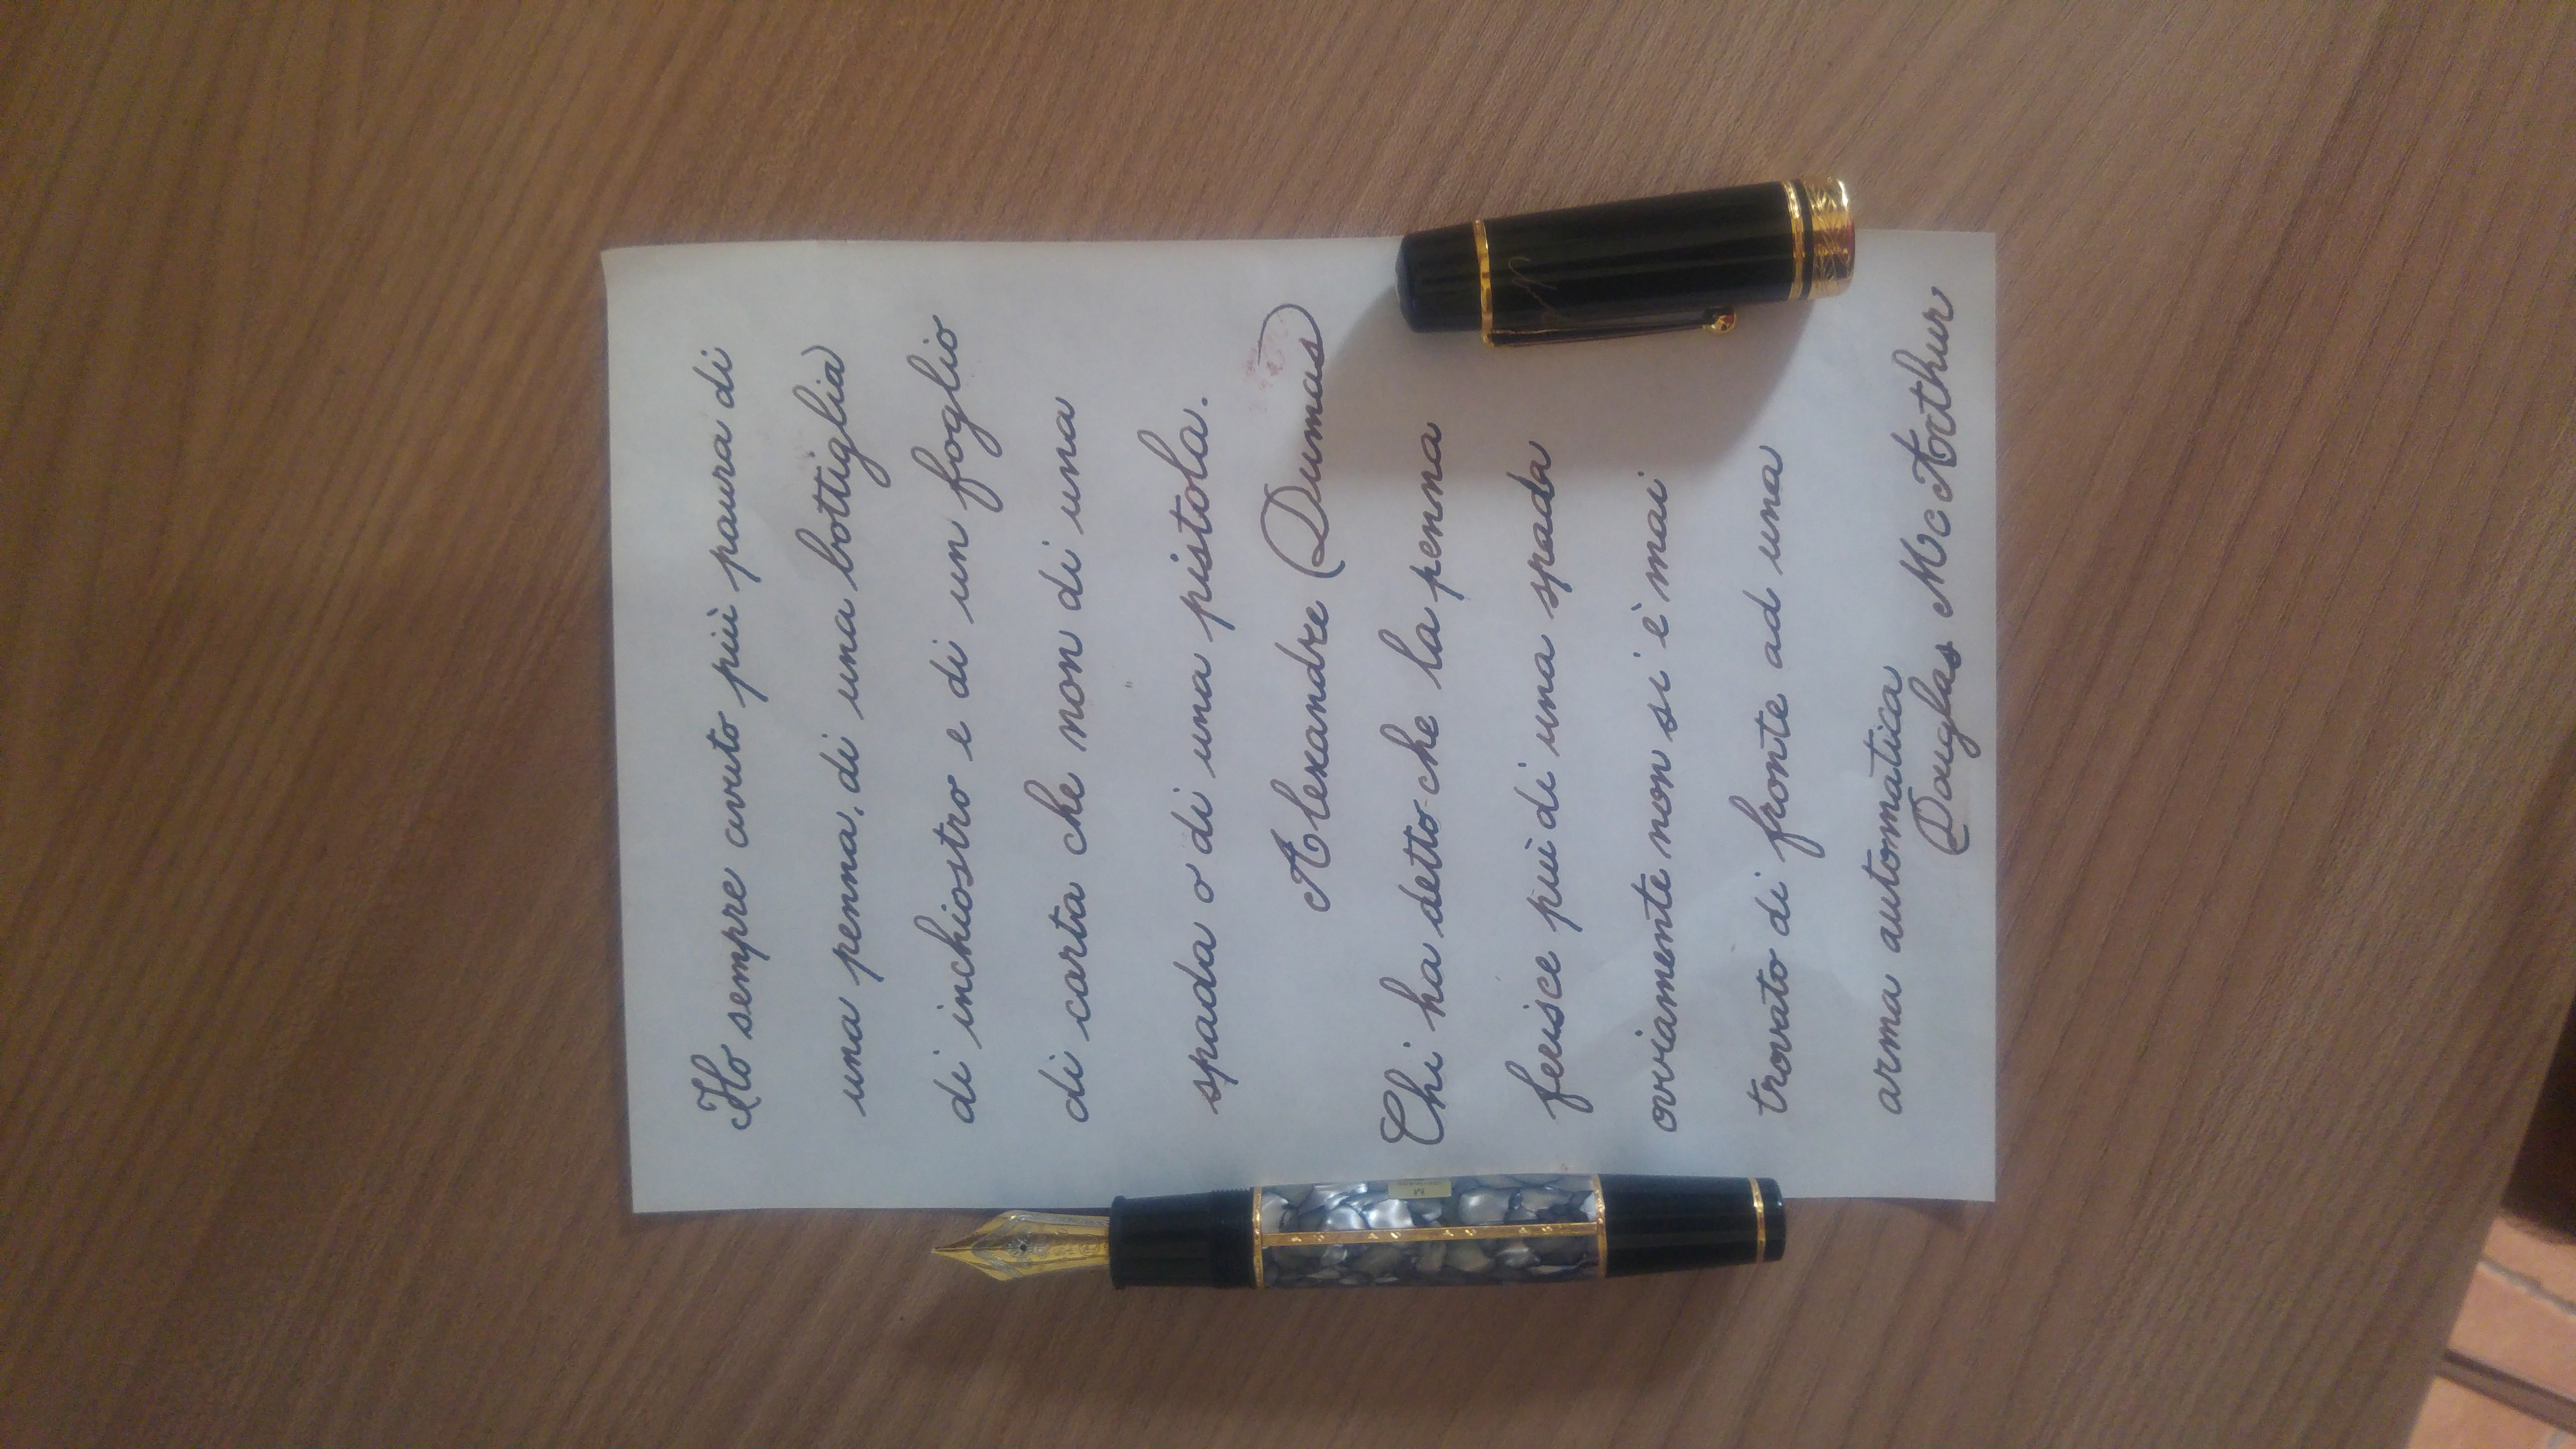 Ho sempre avuto più paura di
una penna, di una bottiglia
di inchiostro e di un foglio
di carta che non di una
spada o di una pistola.
Alexandre Dumas
Chi ha detto che la penna
ferisce più di una spada
ovviamente non si è mai
trovato di fronte ad una
arma automatica
Douglas Mc Arthur
M